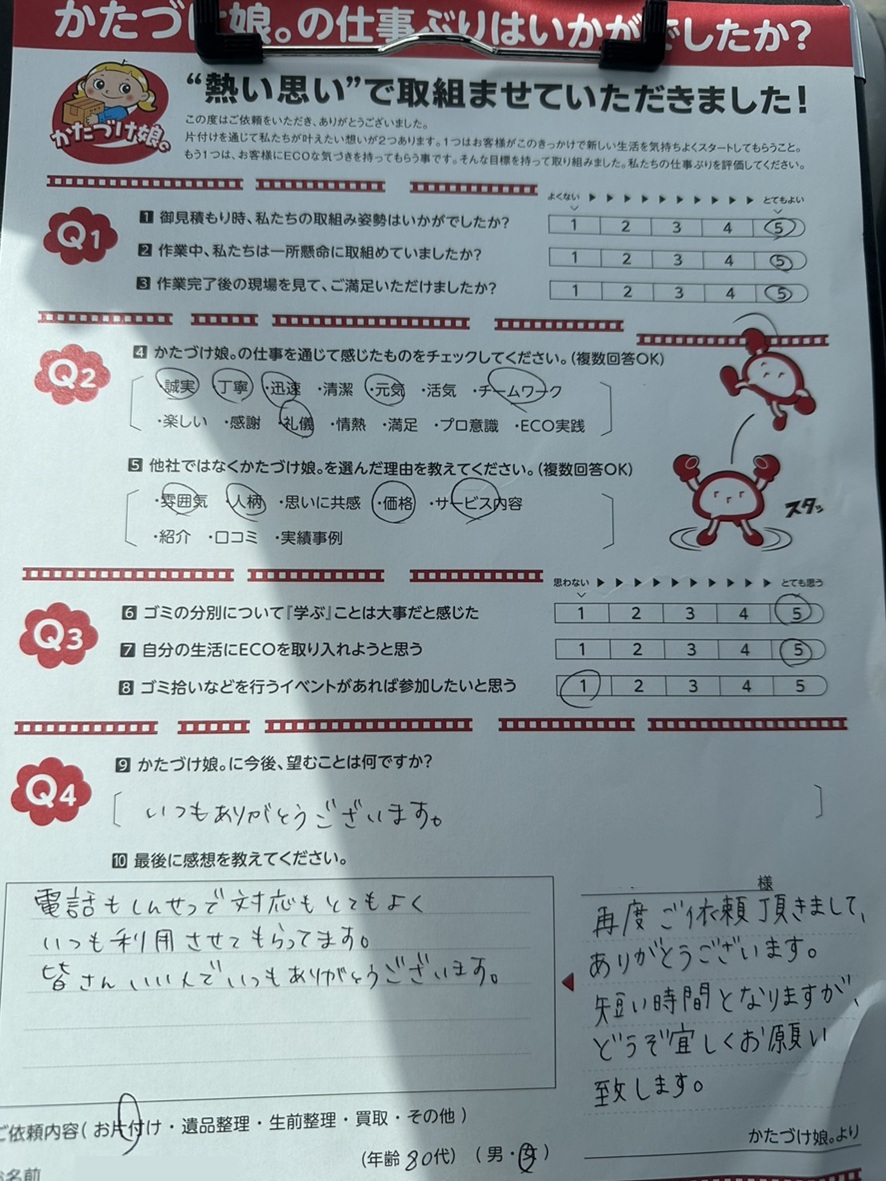 かたづけ娘。の仕事ぶりはいかがでしたか?
かたづけ娘。
“熱い思い”で取組ませていただきました!
この度はご依頼をいただき、ありがとうございました。
片付けを通じて私たちが叶えたい想いが2つあります。1つはお客様がこのきっかけで新しい生活を気持ちよくスタートしてもらうこと。
もう1つは、お客様にECOな気づきを持ってもらう事です。そんな目標を持って取り組みました。私たちの仕事ぶりを評価してください。
よくない とてもよい
Q1
1 御見積もり時、私たちの取組み姿勢はいかがでしたか? 1 2 3 4 5
2 作業中、私たちは一所懸命に取組めていましたか? 1 2 3 4 5
3 作業完了後の現場を見て、ご満足いただけましたか? 1 2 3 4 5
Q2
4 かたづけ娘。の仕事を通じて感じたものをチェックしてください。(複数回答OK)
・誠実 ・丁寧 ・迅速 ・清潔 ・元気 ・活気 ・チームワーク
・楽しい ・感謝 ・礼儀 ・情熱 ・満足 ・プロ意識 ・ECO実践
5 他社ではなくかたづけ娘。を選んだ理由を教えてください。(複数回答OK)
・雰囲気 ・人柄 ・思いに共感 ・価格 ・サービス内容
・紹介 ・口コミ ・実績事例
スタッ
思わない とても思う
Q3
6 ゴミの分別について『学ぶ』ことは大事だと感じた 1 2 3 4 5
7 自分の生活にECOを取り入れようと思う 1 2 3 4 5
8 ゴミ拾いなどを行うイベントがあれば参加したいと思う 1 2 3 4 5
Q4
9 かたづけ娘。に今後、望むことは何ですか?
いつもありがとうございます。
10 最後に感想を教えてください。
電話もしんせつで対応もとてもよく
いつも利用させてもらってます。
皆さんいい人でいつもありがとうございます。
様
再度ご依頼頂きまして、
ありがとうございます。
短い時間となりますが、
どうぞ宜しくお願い
致します。
かたづけ娘。より
ご依頼内容(お片付け・遺品整理・生前整理・買取・その他)
(年齢80代) (男・女)
お名前